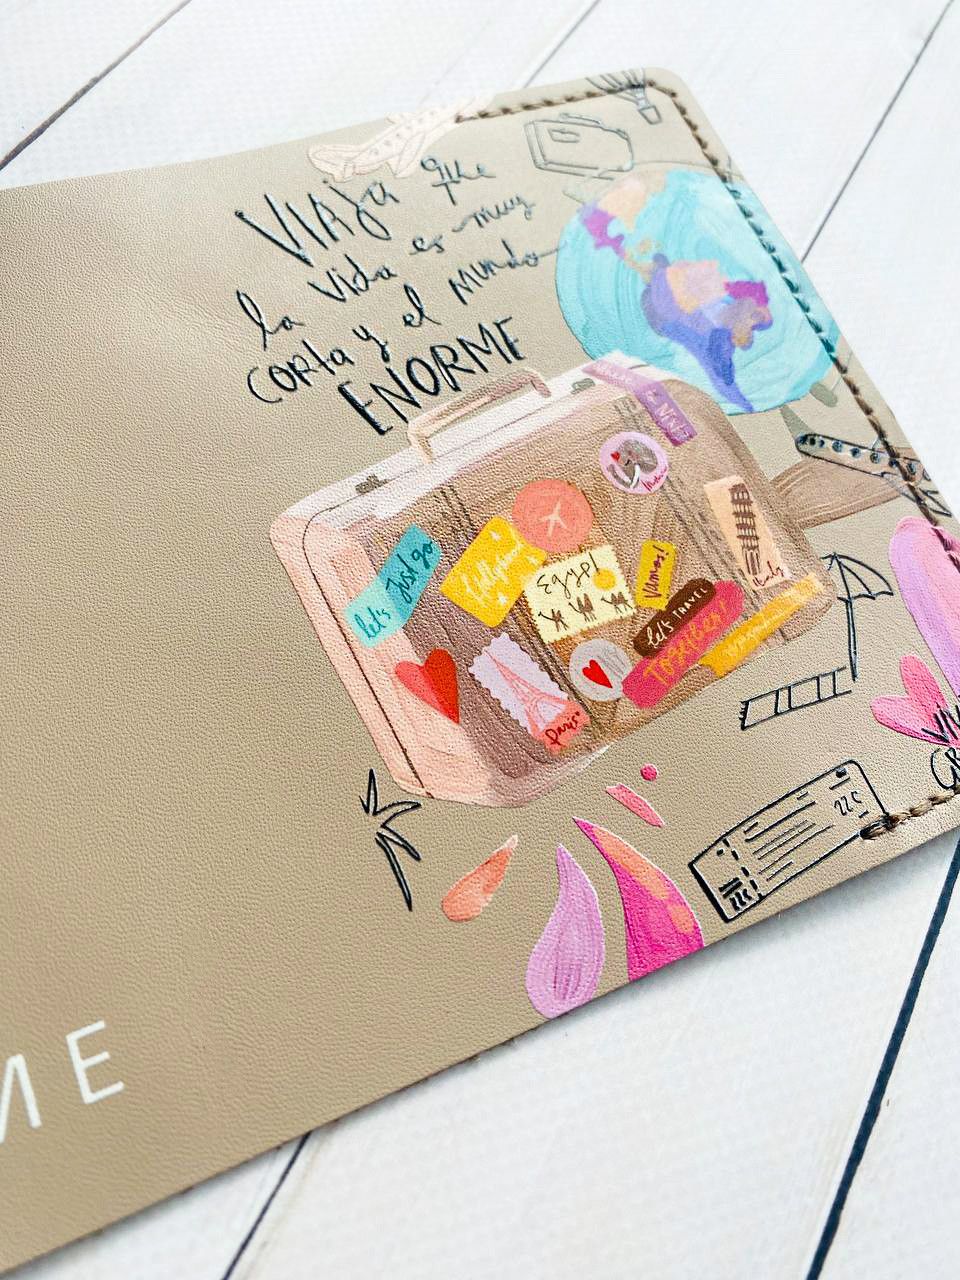 VIAJA que
la vida es muy
corta y el mundo
ENORME
let's Just go
Egypt
Vamos!
Let's TRAVEL
TOGETHER!
Italy
Paris
225
225
ME